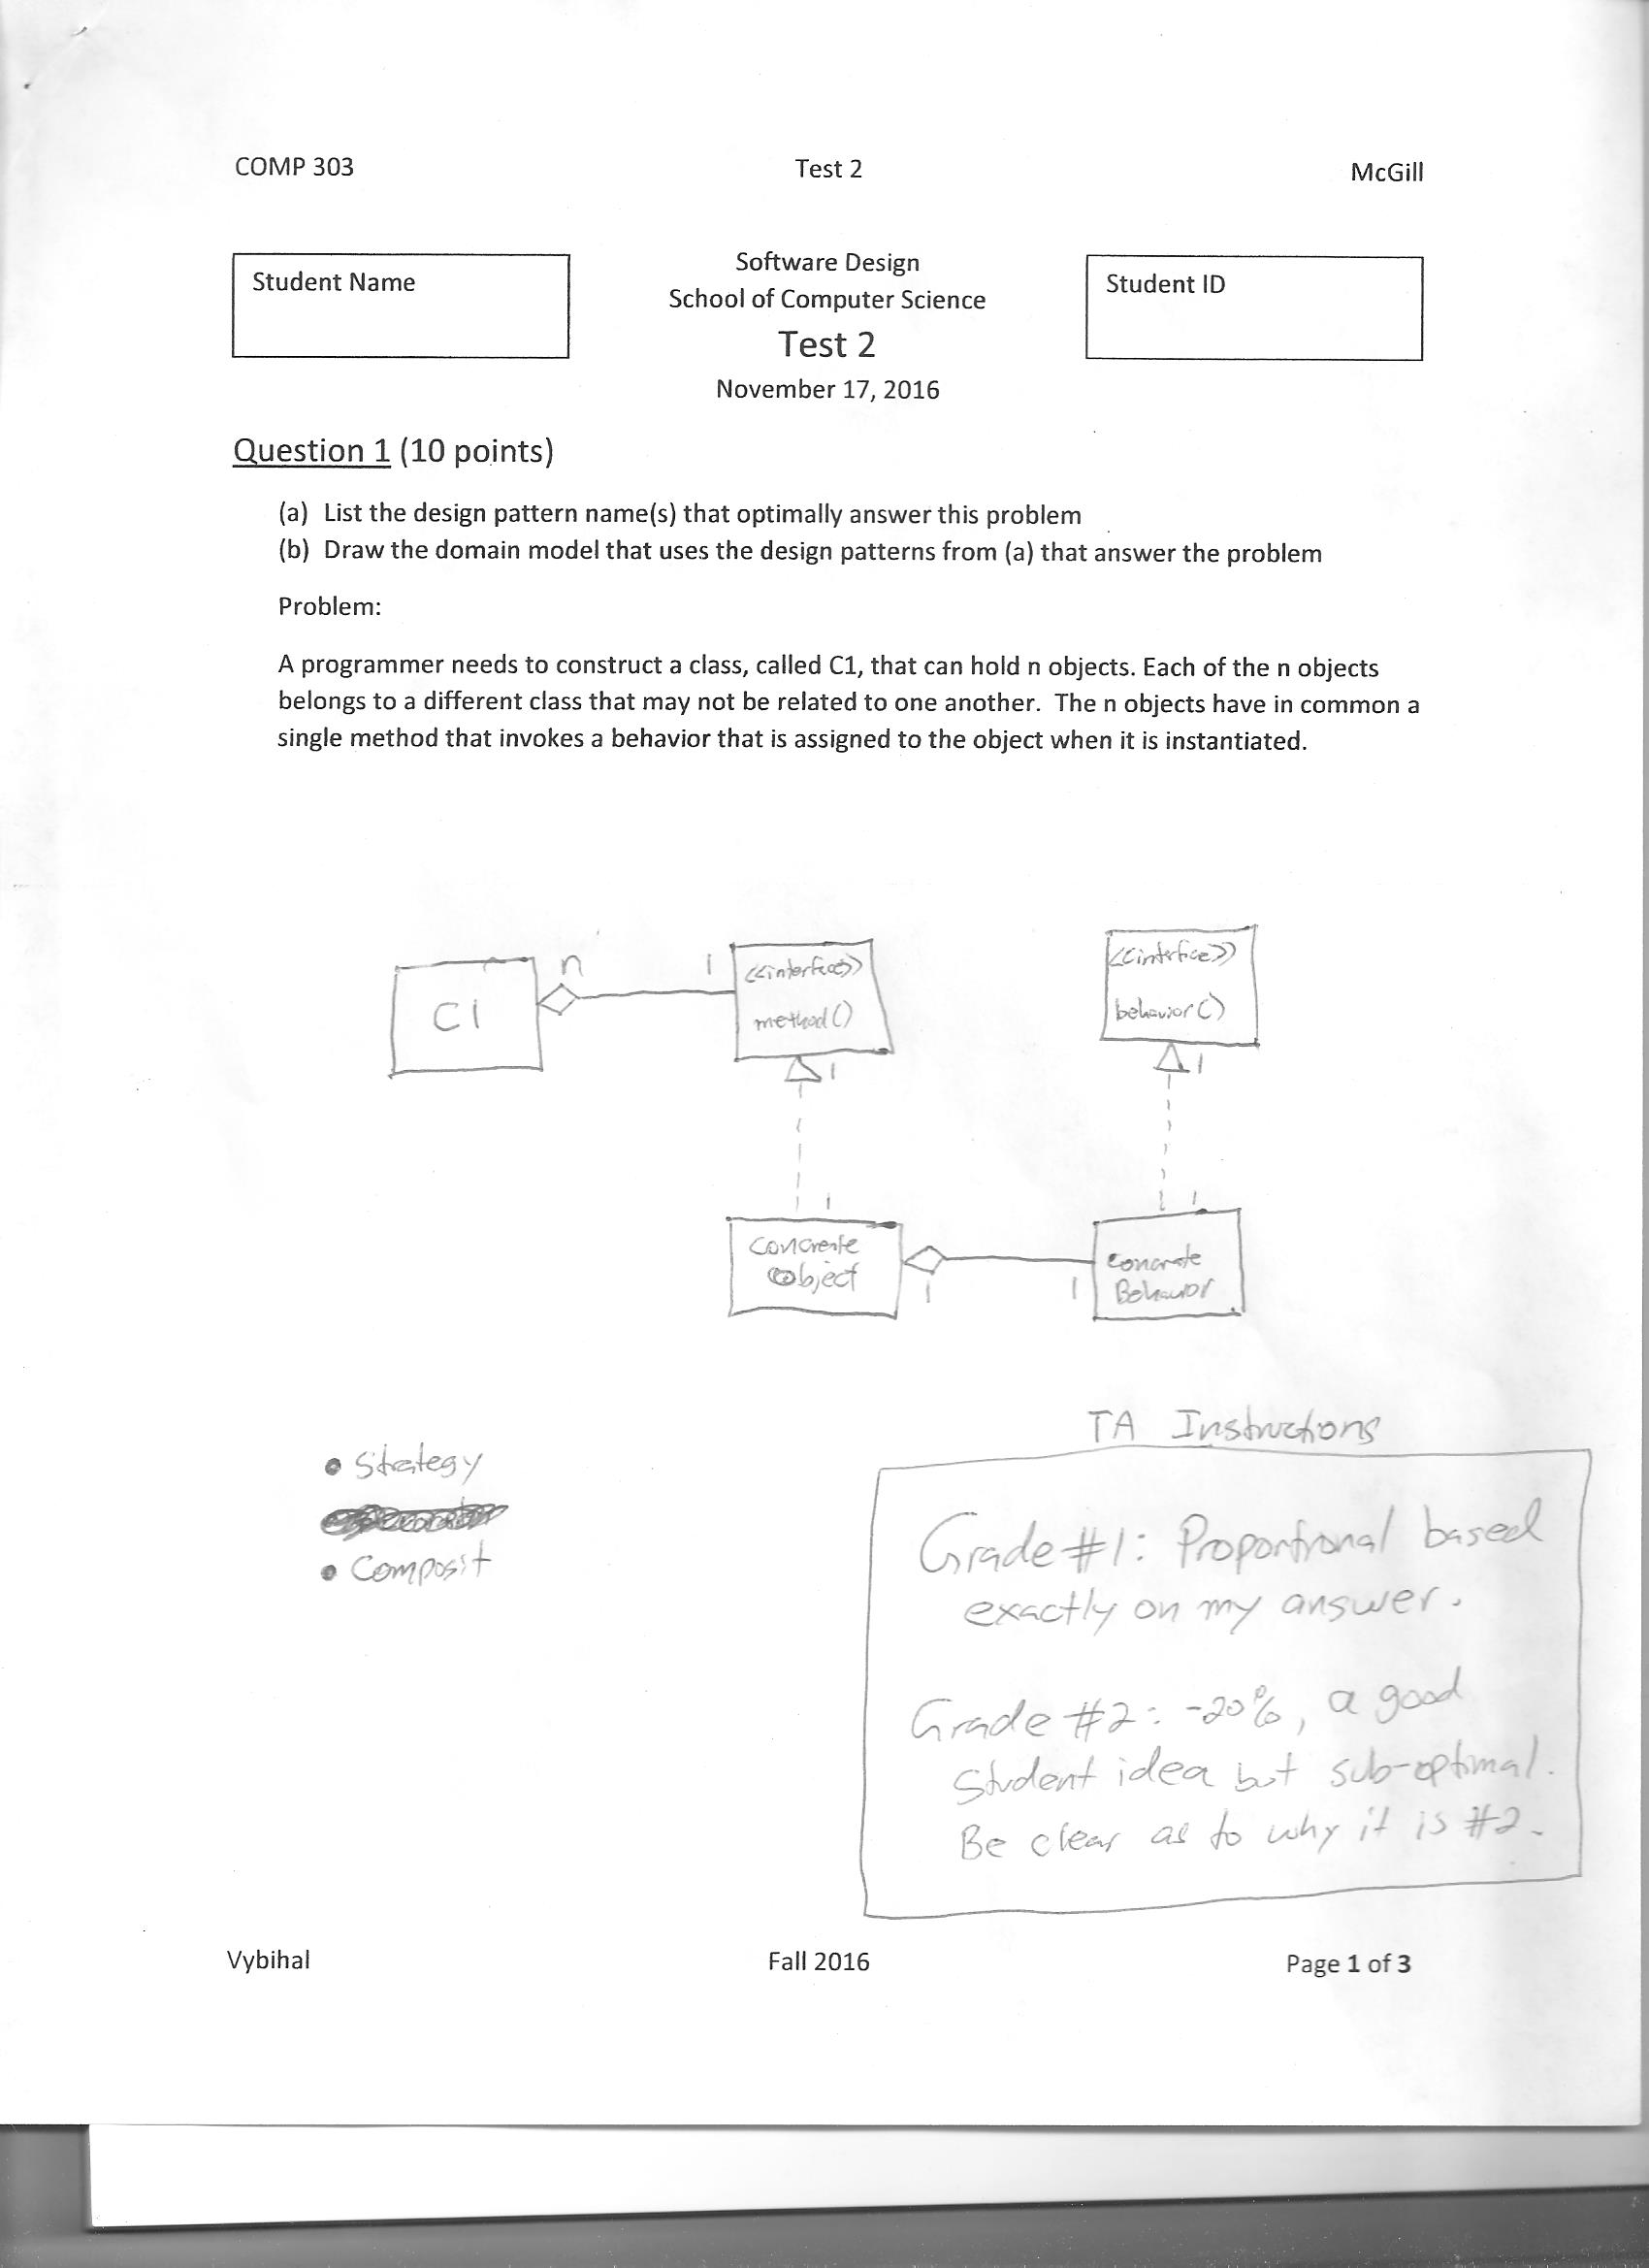 COMP 303 Test 2 McGill
Student Name
Software Design
School of Computer Science
Test 2
November 17, 2016
Student ID
Question 1 (10 points)
(a) List the design pattern name(s) that optimally answer this problem
(b) Draw the domain model that uses the design patterns from (a) that answer the problem
Problem:
A programmer needs to construct a class, called C1, that can hold n objects. Each of the n objects
belongs to a different class that may not be related to one another. The n objects have in common a
single method that invokes a behavior that is assigned to the object when it is instantiated.
C1
n 1
<<interface>>
method()
1
<<interface>>
behavior()
1
1
Concrete
Object
1 1
1
Concrete
Behavior
TA Instructions
• Strategy
• Composit
Grade #1: Proportional based
exactly on my answer.
Grade #2: -20%, a good
Student idea but sub-optimal.
Be clear as to why it is #2.
Vybihal Fall 2016 Page 1 of 3